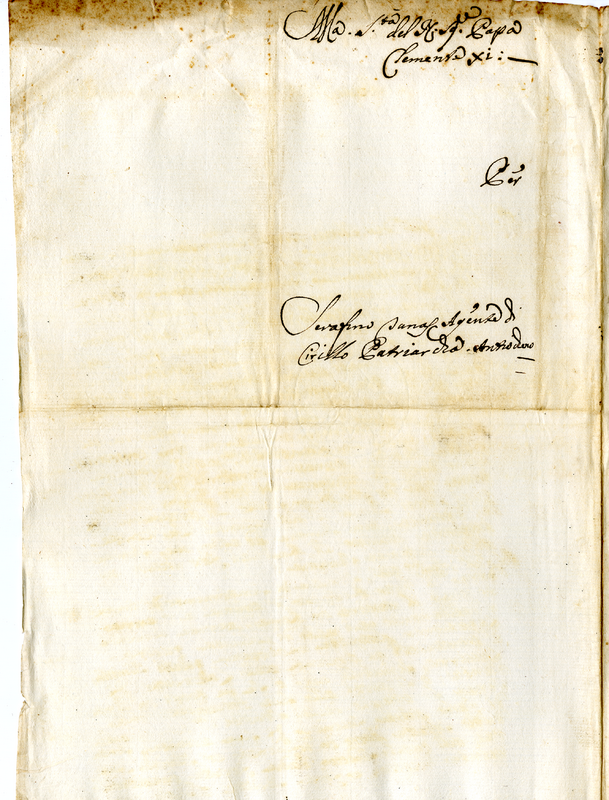 Alla S.tà del N. Sig.re Papa
Clemente XI:
Per
Serafino Tanas Agente di
Cirillo Patriarcha Antiocheno